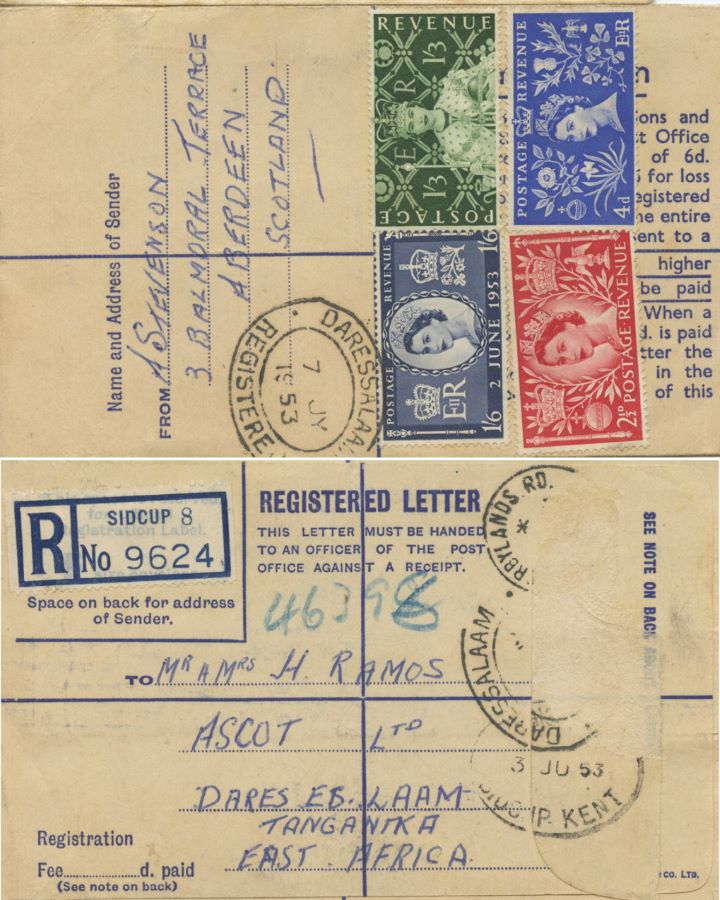 Name and Address of Sender
FROM A STEVENSON
3 BALMORAL TERRACE
ABERDEEN.
SCOTLAND.
REVENUE
E R
1/3
1/3
POSTAGE
POSTAGE REVENUE
E II R
4d
POSTAGE
REVENUE
1/6 2 JUNE 1953 1/6
E II R
2½D POSTAGE·REVENUE
DARESSALAAM
REGISTERED
7 JY
53
ons and
t Office
of 6d.
for loss
egistered
ne entire
ent to a
higher
be paid
When a
d. is paid
tter the
in the
of this
R
SIDCUP 8
No 9624
REGISTERED LETTER
THIS LETTER MUST BE HANDED
TO AN OFFICER OF THE POST
OFFICE AGAINST A RECEIPT.
Space on back for address
of Sender.
TO MR & MRS H. RAMOS
ASCOT LTD
DARES EB. LAAM
TANGANIKA
EAST. AFRICA.
Registration
Fee d. paid
(See note on back)
RD.
DARESSALAAM
3 JU 53
SIDCUP. KENT
SEE NOTE ON BACK
CO. LTD.